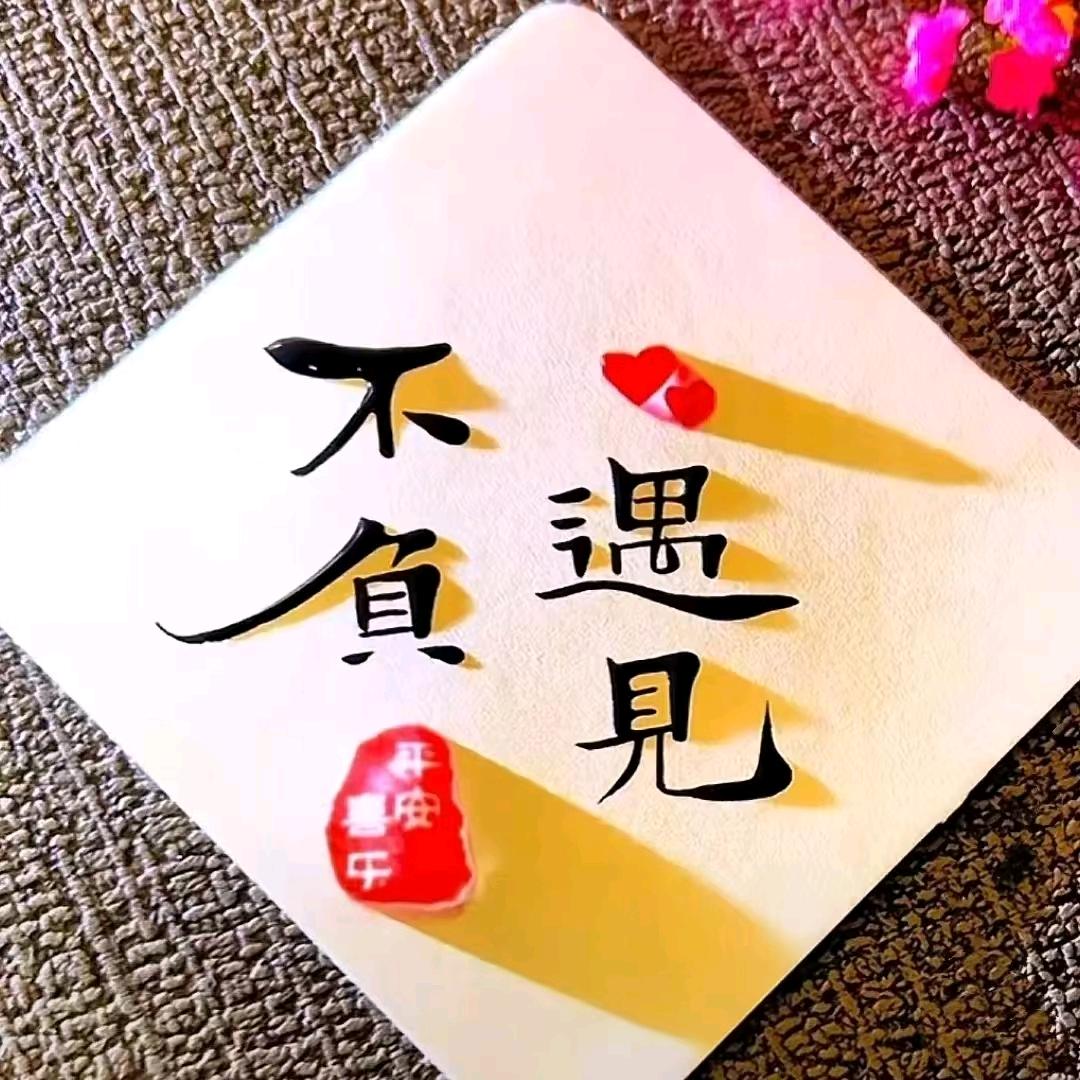 不負
遇見
平安
喜乐